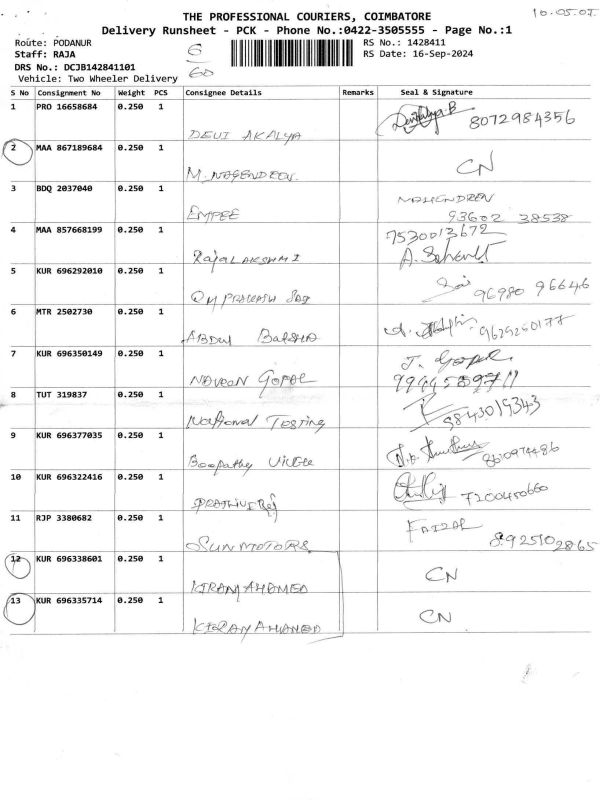 10.05.01
THE PROFESSIONAL COURIERS, COIMBATORE
Delivery Runsheet - PCK - Phone No.:0422-3505555 - Page No.:1
Route: PODANUR RS No.: 1428411
Staff: RAJA RS Date: 16-Sep-2024
DRS No.: DCJB142841101
Vehicle: Two Wheeler Delivery
6
60
S No Consignment No Weight PCS Consignee Details Remarks Seal & Signature
1 PRO 16658684 0.250 1 DEVI AKALYA 8072984356
2 MAA 867189684 0.250 1 M. NAGENDREN. CN
3 BDQ 2037040 0.250 1 EMPEE MAHENDREN
93602 38538
4 MAA 857668199 0.250 1 RajaLAKSHMI 7530013672
5 KUR 696292010 0.250 1 OM PRAKASH 96980 96646
6 MTR 2502730 0.250 1 ABDUL BATSHA 9629250177
7 KUR 696350149 0.250 1 NAVEEN GOPAL J. Gopal.
8 TUT 319837 0.250 1 National TESTING 9843019343
9 KUR 696377035 0.250 1 Boopathy
10 KUR 696322416 0.250 1 PRATHIVI Raj 7200450660
11 RJP 3380682 0.250 1 SUN MOTORS FAIZAL
8925102865
12 KUR 696338601 0.250 1 KIRAN AHAMED CN
13 KUR 696335714 0.250 1 KIRAN AHAMED CN